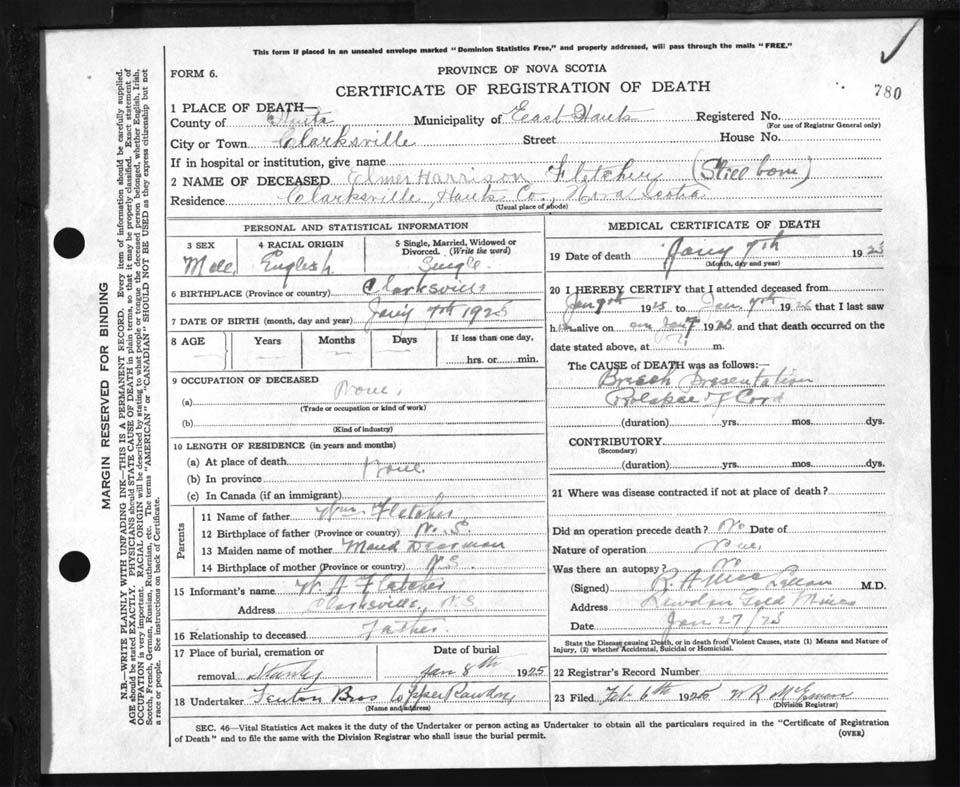 This form if placed in an unsealed envelope marked "Dominion Statistics Free," and properly addressed, will pass through the mails "FREE."
FORM 6.
PROVINCE OF NOVA SCOTIA
CERTIFICATE OF REGISTRATION OF DEATH
780
1 PLACE OF DEATH—
County of Hants Municipality of East Hants Registered No.
(For use of Registrar General only)
City or Town Clarksville Street House No.
If in hospital or institution, give name
2 NAME OF DECEASED Elmer Harrison Fletcher (Still born)
Residence Clarksville, Hants Co., Nova Scotia
(Usual place of abode)
PERSONAL AND STATISTICAL INFORMATION
3 SEX 4 RACIAL ORIGIN 5 Single, Married, Widowed or Divorced. (Write the word)
Male English Single
6 BIRTHPLACE (Province or country) Clarksville
7 DATE OF BIRTH (month, day and year) Jany 7th 1925
8 AGE Years Months Days If less than one day,
hrs. or min.
9 OCCUPATION OF DECEASED
(a) None.
(Trade or occupation or kind of work)
(b)
(Kind of industry)
10 LENGTH OF RESIDENCE (in years and months)
(a) At place of death None
(b) In province
(c) In Canada (if an immigrant)
Parents
11 Name of father Wm. Fletcher
12 Birthplace of father (Province or country) N.S.
13 Maiden name of mother Maud
14 Birthplace of mother (Province or country) N.S.
15 Informant's name W A Fletcher
Address Clarksville, N.S.
16 Relationship to deceased Father.
17 Place of burial, cremation or Date of burial
removal Stanley Jan 8th 1925
18 Undertaker Fenton Bros Upper Rawdon
(Name and address)
MEDICAL CERTIFICATE OF DEATH
19 Date of death Jany 7th 1925
(Month, day and year)
20 I HEREBY CERTIFY that I attended deceased from
Jan 7th 1925 to Jan. 7th 1925 that I last saw
h alive on Jan 7 1925 and that death occurred on the
date stated above, at ? m.
The CAUSE of DEATH was as follows:—
Breech Presentation
Prolapse of Cord
(duration) yrs. mos. dys.
CONTRIBUTORY
(Secondary)
(duration) yrs. mos. dys.
21 Where was disease contracted if not at place of death?
Did an operation precede death? No Date of
Nature of operation
Was there an autopsy? No
(Signed) R. A. M.D.
Address Rawdon Gold Mines
Date Jan 27/25
State the Disease causing Death, or in death from Violent Causes, state (1) Means and Nature of
Injury, (2) whether Accidental, Suicidal or Homicidal.
22 Registrar's Record Number
23 Filed Feb 6th 1925 W R
(Division Registrar)
SEC. 46—Vital Statistics Act makes it the duty of the Undertaker or person acting as Undertaker to obtain all the particulars required in the "Certificate of Registration
of Death" and to file the same with the Division Registrar who shall issue the burial permit.
(OVER)
MARGIN RESERVED FOR BINDING
N.B.—WRITE PLAINLY WITH UNFADING INK—THIS IS A PERMANENT RECORD. Every item of information should be carefully supplied.
AGE should be stated EXACTLY. PHYSICIANS should STATE CAUSE OF DEATH in plain terms, so that it may be properly classified. Exact statement of
OCCUPATION is very important. RACIAL ORIGIN will be described by stating to what people or tongue the deceased person belonged, whether English, Irish,
Scotch, French, German, Russian, Ruthenian, etc. The terms "AMERICAN" or "CANADIAN" SHOULD NOT BE USED as they express citizenship but not
a race or people. See instructions on back of Certificate.